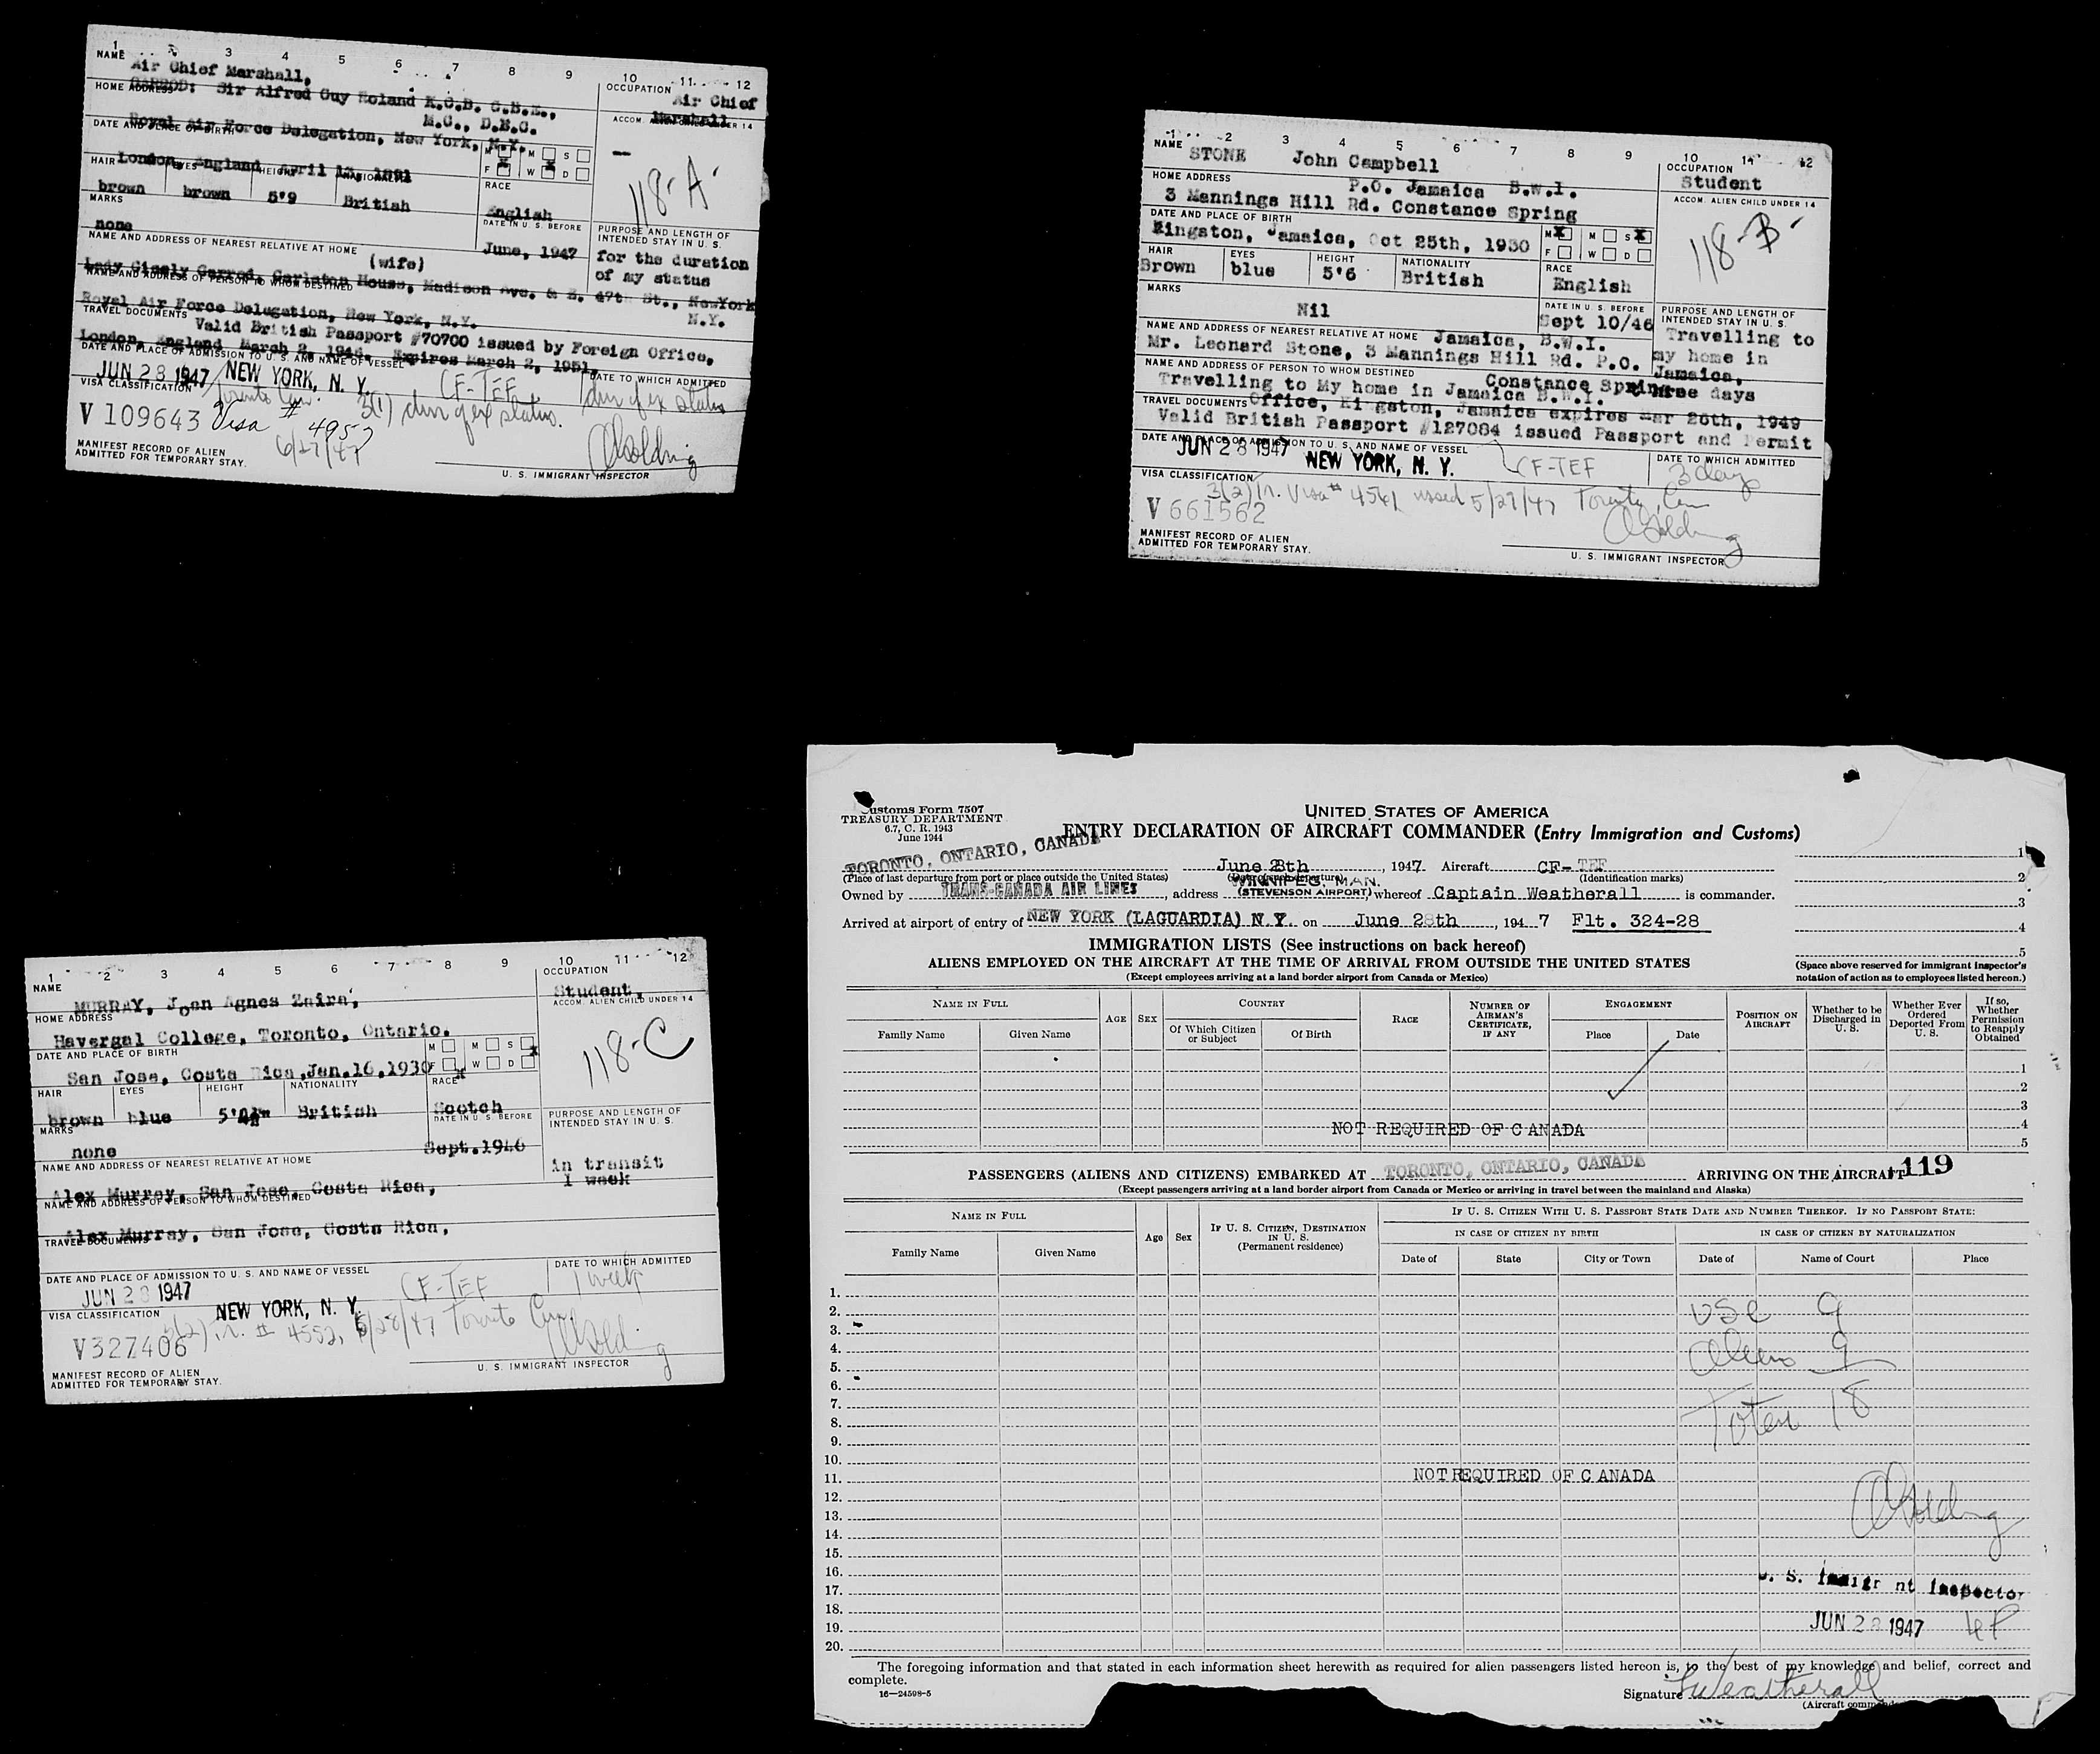 1 2 3 4 5 6 7 8 9 10 11 12
NAME Air Chief Marshall,
OCCUPATION Air Chief Marshall
GARROD: Sir Alfred Guy Roland K.C.B. O.B.E.,
HOME ADDRESS M.C., D.F.C.
ACCOM. ALIEN CHILD UNDER 14
Royal Air Force Delegation, New York, N.Y.
DATE AND PLACE OF BIRTH
M M S
F W D
118-A
London, England April 13, 1891
HAIR EYES HEIGHT NATIONALITY RACE
brown brown 5'9 British English
MARKS DATE IN U. S. BEFORE
none June, 1947
PURPOSE AND LENGTH OF INTENDED STAY IN U. S.
for the duration
of my status
NAME AND ADDRESS OF NEAREST RELATIVE AT HOME (wife)
Lady Cicely Garrod, Carlston House, Madison Ave. & E. 47th St., NewYork
N.Y.
NAME AND ADDRESS OF PERSON TO WHOM DESTINED
Royal Air Force Delegation, New York, N.Y.
TRAVEL DOCUMENTS Valid British Passport #70700 issued by Foreign Office,
London, England March 2, 1946. Expires March 2, 1951.
DATE AND PLACE OF ADMISSION TO U. S. AND NAME OF VESSEL DATE TO WHICH ADMITTED
JUN 28 1947 NEW YORK, N. Y. CF-TEF dur of ex status
VISA CLASSIFICATION Toronto Can. 3(1) dur of ex status.
V 109643 Visa # 4957
6/27/47
AGolding
MANIFEST RECORD OF ALIEN
ADMITTED FOR TEMPORARY STAY.
U. S. IMMIGRANT INSPECTOR
1 2 3 4 5 6 7 8 9 10 11 12
NAME STONE John Campbell
OCCUPATION Student
HOME ADDRESS P.O. Jamaica B.W.I.
3 Mannings Hill Rd. Constance Spring
ACCOM. ALIEN CHILD UNDER 14
118-B
DATE AND PLACE OF BIRTH
Kingston, Jamaica, Oct 25th, 1930
M M S
F W D
HAIR EYES HEIGHT NATIONALITY RACE
Brown blue 5'6 British English
MARKS DATE IN U. S. BEFORE
Nil Sept 10/46
PURPOSE AND LENGTH OF INTENDED STAY IN U. S.
Travelling to
my home in
Jamaica,
three days
NAME AND ADDRESS OF NEAREST RELATIVE AT HOME Jamaica, B.W.I.
Mr. Leonard Stone, 3 Mannings Hill Rd. P.O.
Constance Spring
NAME AND ADDRESS OF PERSON TO WHOM DESTINED
Travelling to My home in Jamaica B.W.I.
TRAVEL DOCUMENTS Office, Kingston, Jamaica expires Mar 26th, 1949
Valid British Passport #127084 issued Passport and Permit
DATE AND PLACE OF ADMISSION TO U. S. AND NAME OF VESSEL DATE TO WHICH ADMITTED
JUN 28 1947 NEW YORK, N. Y. CF-TEF 3 days
VISA CLASSIFICATION
3(2) Tr. Visa # 4561 issued 5/29/47 Toronto, Can
V 661562 AGolding
MANIFEST RECORD OF ALIEN
ADMITTED FOR TEMPORARY STAY.
U. S. IMMIGRANT INSPECTOR
1 2 3 4 5 6 7 8 9 10 11 12
NAME MURRAY, Joan Agnes Zaira,
OCCUPATION Student,
HOME ADDRESS
Havergal College, Toronto, Ontario.
ACCOM. ALIEN CHILD UNDER 14
118-C
DATE AND PLACE OF BIRTH
San Jose, Costa Rica, Jan.16,1930
M M S
F W D
HAIR EYES HEIGHT NATIONALITY RACE
brown blue British Scotch
MARKS DATE IN U. S. BEFORE
none Sept.1946
PURPOSE AND LENGTH OF INTENDED STAY IN U. S.
in transit
1 week
NAME AND ADDRESS OF NEAREST RELATIVE AT HOME
Alex Murray, San Jose, Costa Rica,
NAME AND ADDRESS OF PERSON TO WHOM DESTINED
Alex Murray, San Jose, Costa Rica,
TRAVEL DOCUMENTS
DATE AND PLACE OF ADMISSION TO U. S. AND NAME OF VESSEL DATE TO WHICH ADMITTED
JUN 28 1947 NEW YORK, N. Y. CF-TEF 1 week
VISA CLASSIFICATION
3(2) Tr. # 4552, 5/28/47 Toronto Can.
V327406 AGolding
MANIFEST RECORD OF ALIEN
ADMITTED FOR TEMPORARY STAY.
U. S. IMMIGRANT INSPECTOR
Customs Form 7507
TREASURY DEPARTMENT
6.7, C. R. 1943
June 1944
UNITED STATES OF AMERICA
ENTRY DECLARATION OF AIRCRAFT COMMANDER (Entry Immigration and Customs)
TORONTO, ONTARIO, CANADA June 28th, 1947 Aircraft CF-TEF
(Place of last departure from port or place outside the United States) (Date of such departure) (Identification marks)
Owned by TRANS-CANADA AIR LINES, address WINNIPEG, MAN. (STEVENSON AIRPORT), whereof Captain Weatherall is commander.
Arrived at airport of entry of NEW YORK (LAGUARDIA) N.Y. on June 28th, 1947 Flt. 324-28
1
2
3
4
5
(Space above reserved for immigrant inspector's notation of action as to employees listed hereon.)
IMMIGRATION LISTS (See instructions on back hereof)
ALIENS EMPLOYED ON THE AIRCRAFT AT THE TIME OF ARRIVAL FROM OUTSIDE THE UNITED STATES
(Except employees arriving at a land border airport from Canada or Mexico)
NAME IN FULL AGE SEX COUNTRY RACE NUMBER OF AIRMAN'S CERTIFICATE, IF ANY ENGAGEMENT POSITION ON AIRCRAFT Whether to be Discharged in U. S. Whether Ever Ordered Deported From U. S. If so, Whether Permission to Reapply Obtained
Family Name Given Name Of Which Citizen or Subject Of Birth Place Date
1
2
3
4
5
NOT REQUIRED OF CANADA
PASSENGERS (ALIENS AND CITIZENS) EMBARKED AT TORONTO, ONTARIO, CANADA ARRIVING ON THE AIRCRAFT 119
(Except passengers arriving at a land border airport from Canada or Mexico or arriving in travel between the mainland and Alaska)
NAME IN FULL Age Sex IF U. S. CITIZEN, DESTINATION IN U. S. (Permanent residence) IF U. S. CITIZEN WITH U. S. PASSPORT STATE DATE AND NUMBER THEREOF. IF NO PASSPORT STATE:
IN CASE OF CITIZEN BY BIRTH IN CASE OF CITIZEN BY NATURALIZATION
Family Name Given Name Date of State City or Town Date of Name of Court Place
1.
2. USC 9
3.
4. Aliens 9
5.
6.
7. Total 18
8.
9.
10.
11. NOT REQUIRED OF CANADA
12.
13. AGolding
14.
15.
16.
17. U. S. Immigrant Inspector
18.
19. JUN 28 1947 4P
20.
The foregoing information and that stated in each information sheet herewith as required for alien passengers listed hereon is, to the best of my knowledge and belief, correct and
complete.
16—24598-5
Signature Weatherall
(Aircraft